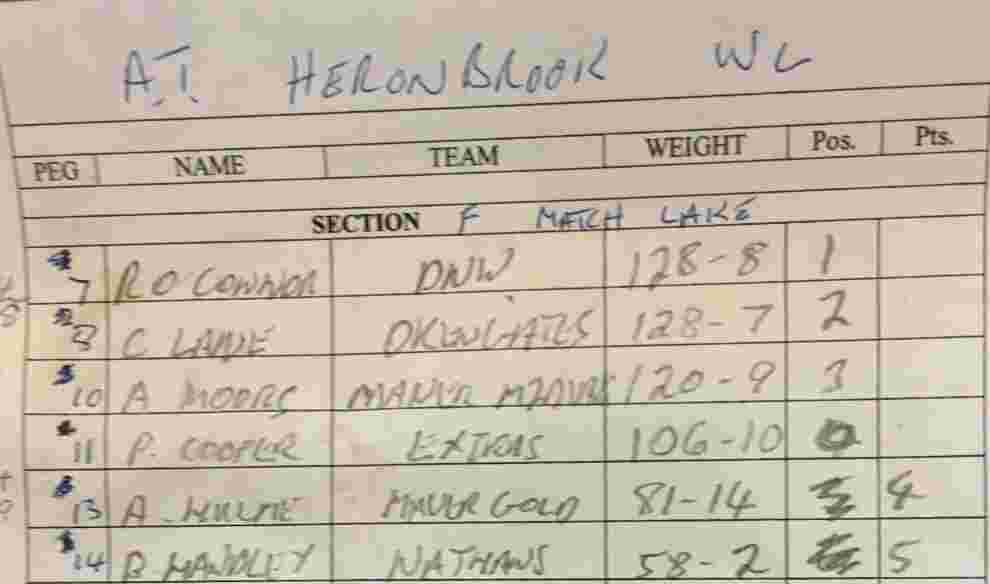 A.T. HERONBROOK WL
PEG NAME TEAM WEIGHT Pos. Pts.
SECTION F MATCH LAKE
7 R O'CONNOR DNW 128-8 1
8 C 128-7 2
10 A MOORS 120-9 3
11 P. COOPER EXTRAS 106-10 0
13 A. HULME MAVER GOLD 81-14 4
14 B HANDLEY NATHANS 58-2 5